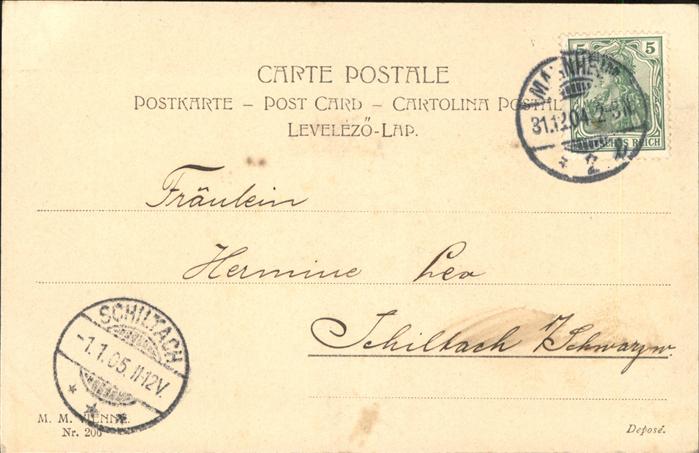 CARTE POSTALE
POSTKARTE – POST CARD – CARTOLINA POSTAL
LEVELÉZŐ-LAP.
5 5
DEUTSCHES REICH
MANNHEIM
31.12.04. 2-3 N.
* 2
Fräulein
Hermine Leo
Schiltach /Schwarzw.
SCHILTACH
-1.1.05. 11-12V.
M. M. VIENNE.
Nr. 206
Deposé.